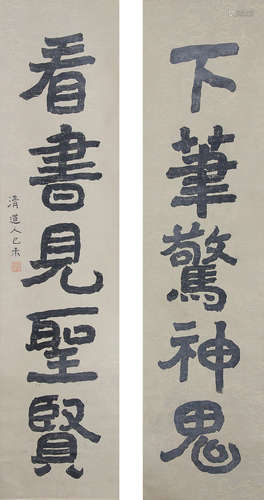 下筆驚神思
看書見聖賢
清道人己未